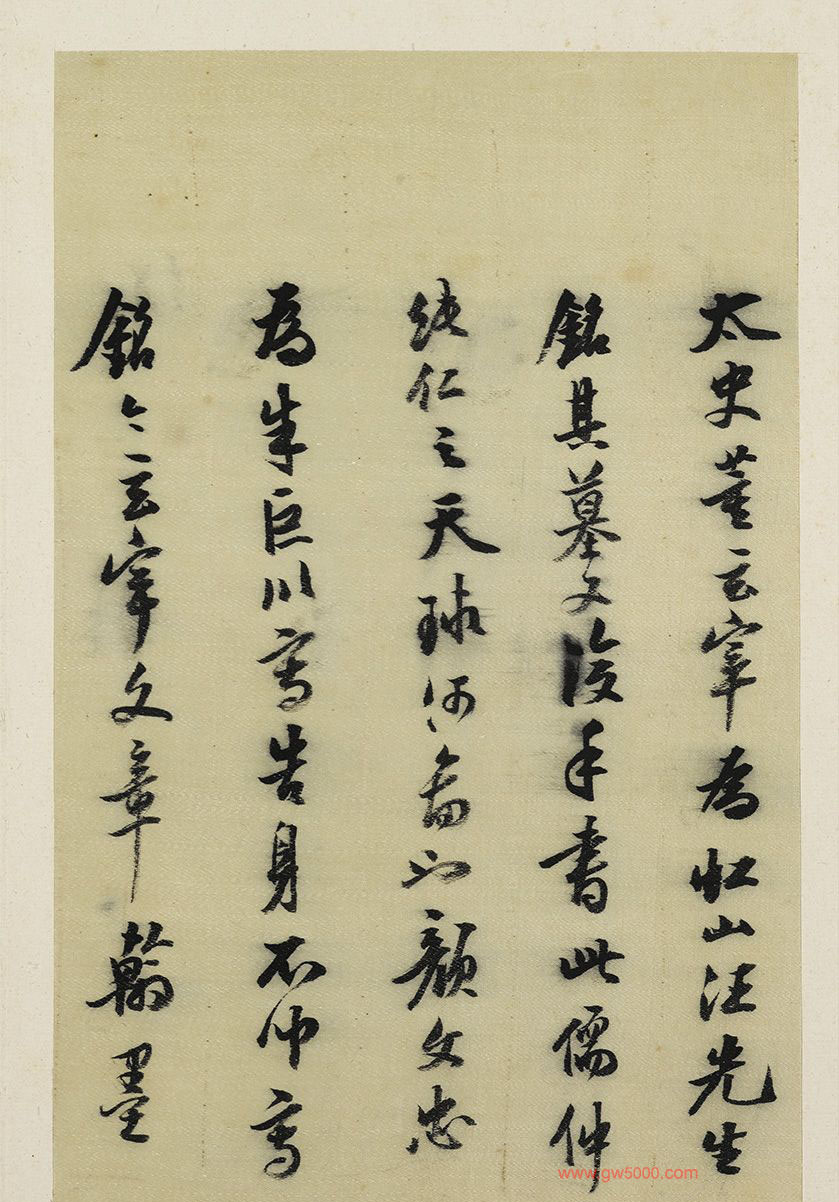 太史董玄宰為山汪先生
銘其墓文復手書此儒仲
純仁之天球河圖也顏文忠
為朱巨川寫告身不聞寫
銘今玄宰文章翰墨
www.gw5000.com